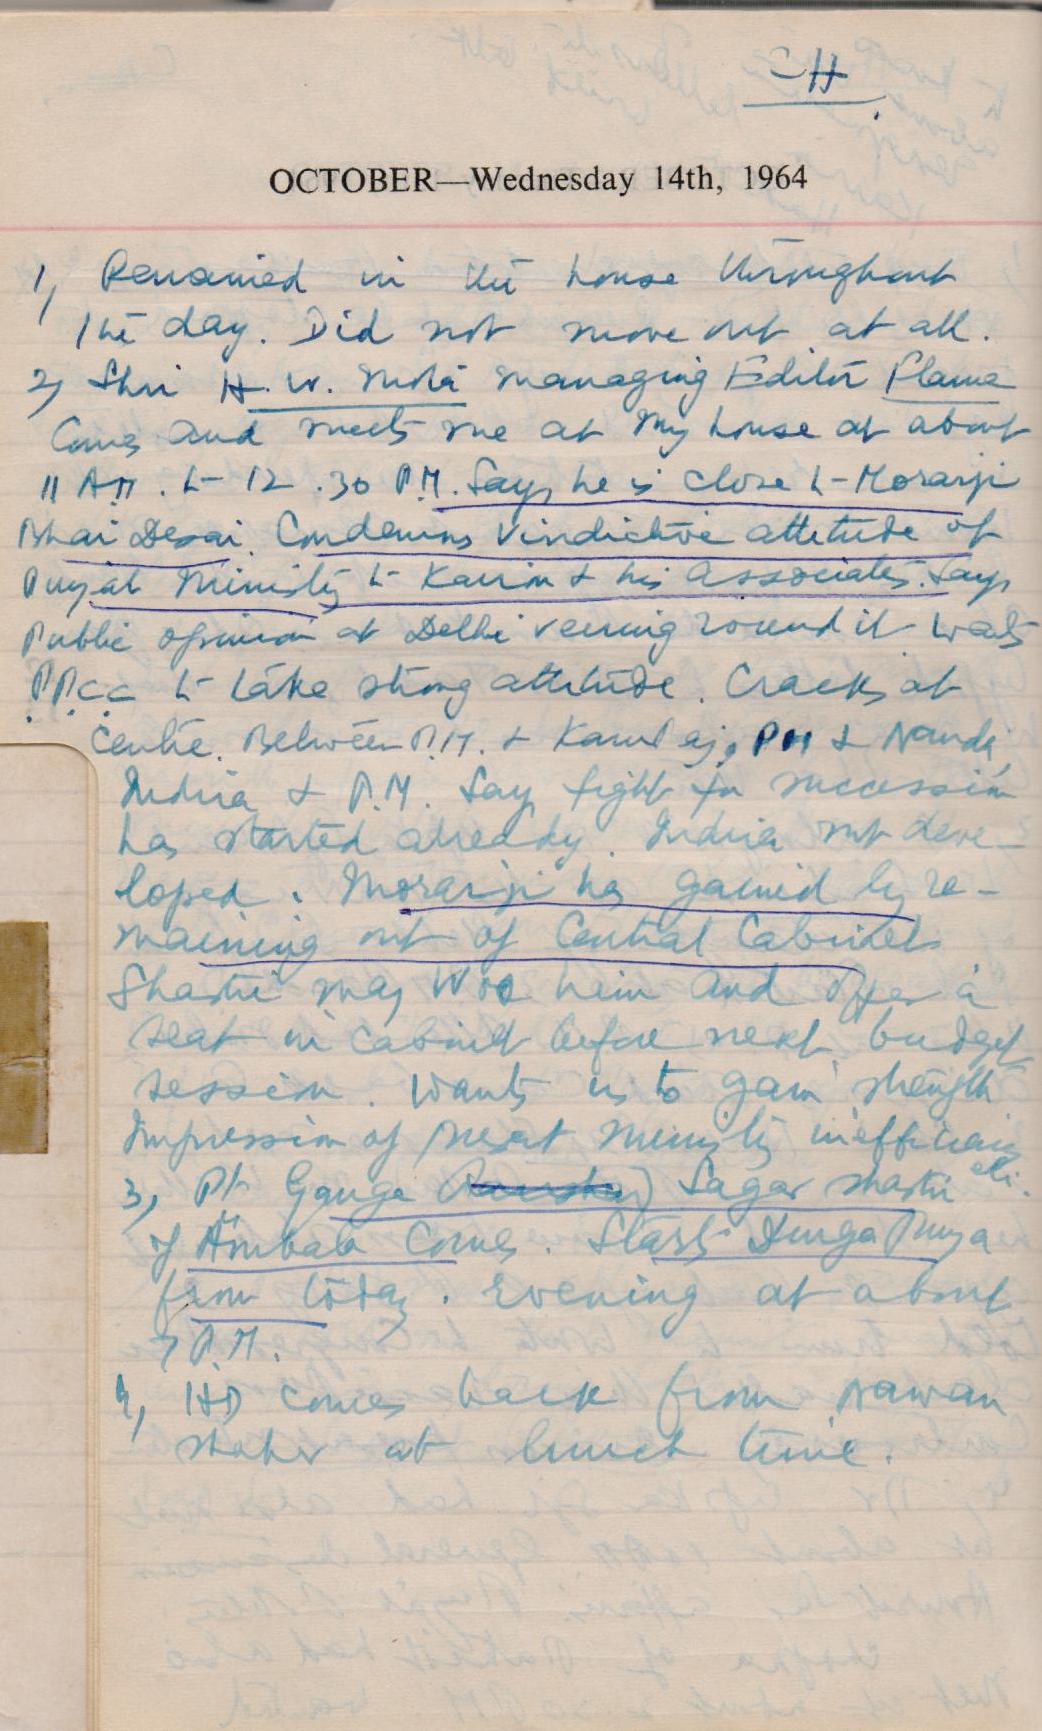 CH
OCTOBER—Wednesday 14th, 1964
1, Remained in the house throughout
the day. Did not move out at all.
2, Shri H. W. managing Editor Flame
Comes and meets me at my house at about
11 A.M. to 12.30 P.M. Says he is close to Morarji
Bhai Desai. Condemns Vindictive attitude of
Punjab Ministry to Kairon & his associates. Says
Public opinion at Delhi veering round it. Wants
P.P.C.C to take strong attitude. Cracks at
Centre. Between P.M. & Kamraj, PM & Nanda,
Indira & P.M. Says fight for succession
has started already. Indira not deve-
loped. Morarji has gained by re-
maining out of Central Cabinet.
Shastri may Woo him and offer a
seat in Cabinet before next budget
session. Wants us to gain strength
Impression of present Ministry inefficiency
etc.
3, Pt Ganga Sagar Shastri
of Ambala Comes. Starts Durga Puja
from today. Evening at about
7 P.M.
4, HD comes back from Nawan
shahr at lunch time.